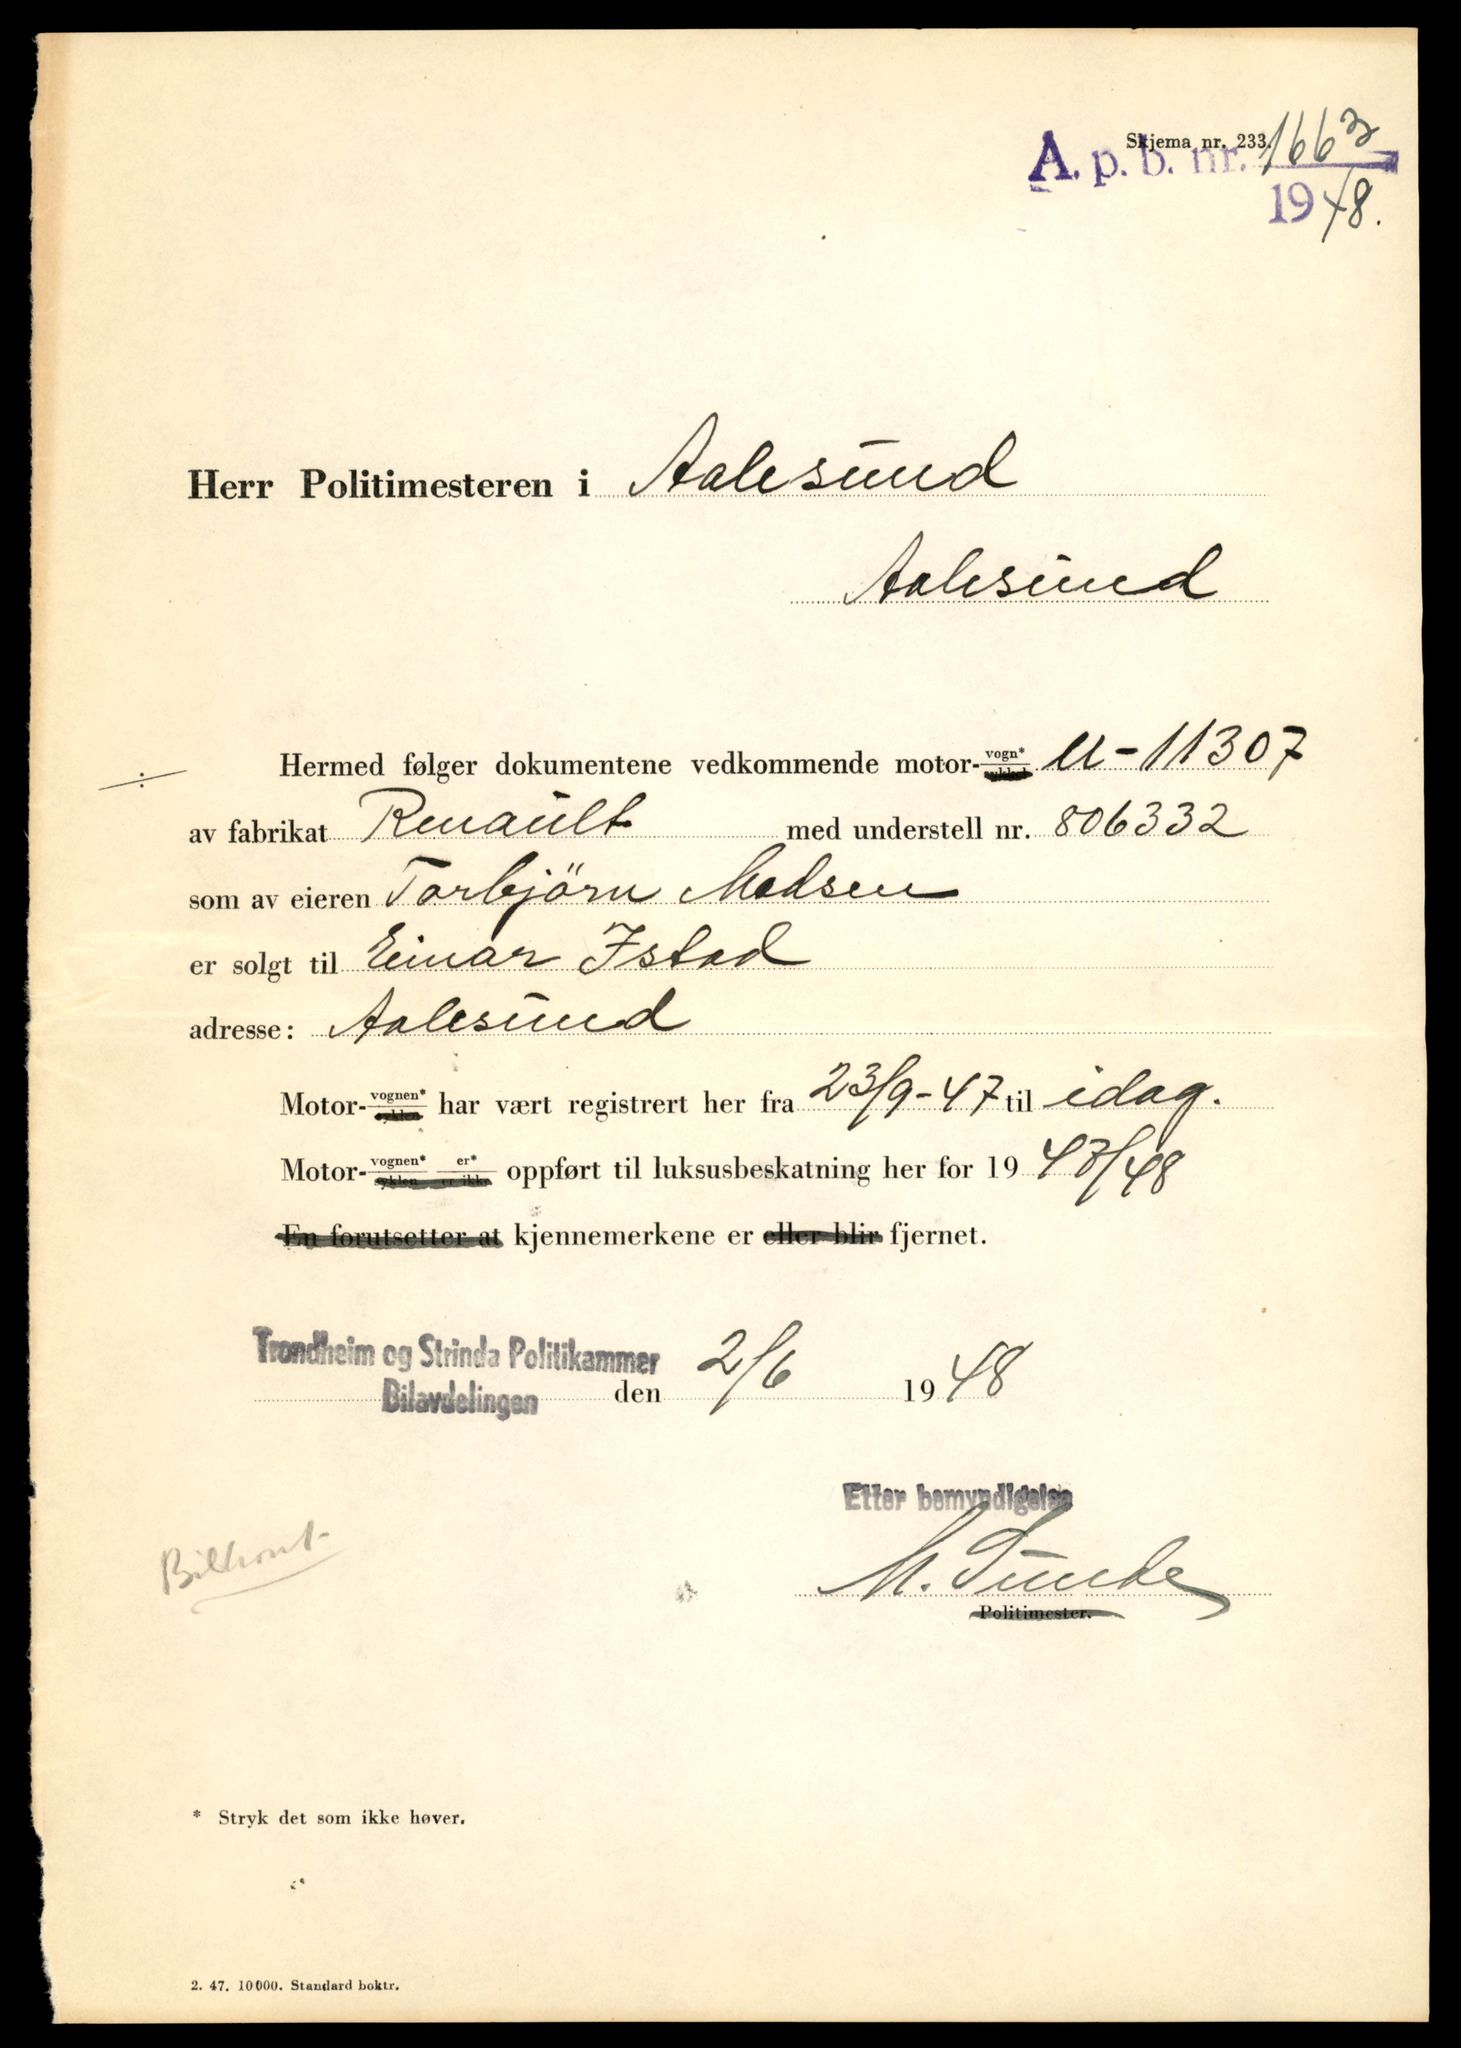 Skjema nr. 233.
A. p. b. nr. 1663
1948.
Herr Politimesteren i Aalesund
Aalesund
Hermed følger dokumentene vedkommende motor-vogn* sykkel U-11307
av fabrikat Renault med understell nr. 806332
som av eieren Torbjörn Madsen
er solgt til Einar Istad
adresse: Aalesund
Motor-vognen* syklen har vært registrert her fra 23/9-47 til idag.
Motor-vognen* syklen er* er ikke oppført til luksusbeskatning her for 1947/48
En forutsetter at kjennemerkene er eller blir fjernet.
Trondheim og Strinda Politikammer
Bilavdelingen den 2/6 1948
Etter bemyndigelse
M.
Politimester.
* Stryk det som ikke høver.
2. 47. 10000. Standard boktr.